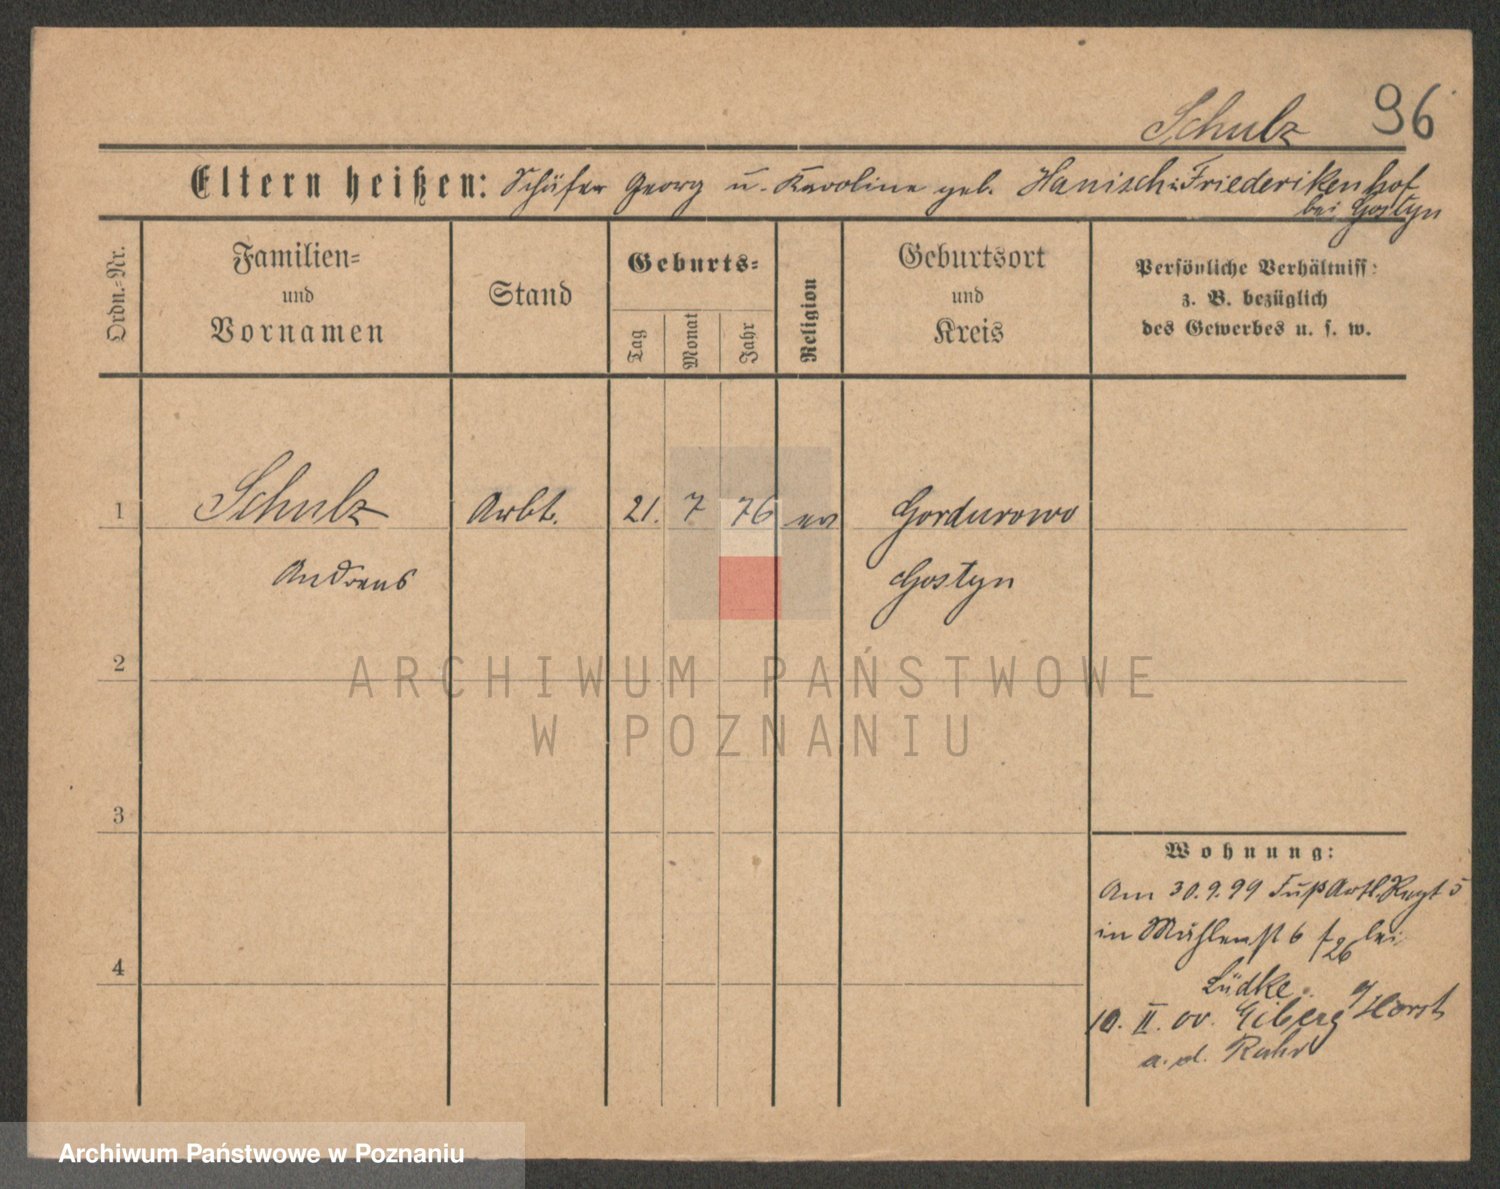 Schulz 96
Eltern heißen: Schäfer Georg u. Karoline geb. Hanisch: Friederikenhof
bei Gostyn
Ordn.-Nr.
Familien-
und
Vornamen
Stand
Geburts-
Tag
Monat
Jahr
Religion
Geburtsort
und
Kreis
Persönliche Verhältniss:
z. B. bezüglich
des Gewerbes u. s. w.
1 Schulz Arbt. 21. 7 76 ev Gordurowo
Andreas Gostyn
2
3
4
Wohnung:
Am 30.9.99 FußArtl.Regt 5
in Mühlenst 6 bei
Lüdke
10. II. 00. Eiberg Horst
a. d. Ruhr
ARCHIWUM PAŃSTWOWE
W POZNANIU
Archiwum Państwowe w Poznaniu